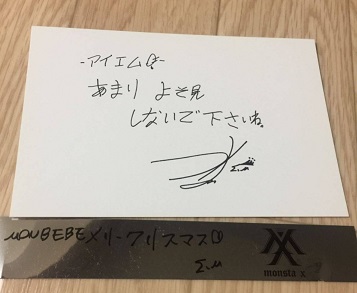 -アイエムは-
あまり よそ見
しないで下さいね。
I.M
MONBEBEメリークリスマス
I.M
monsta x